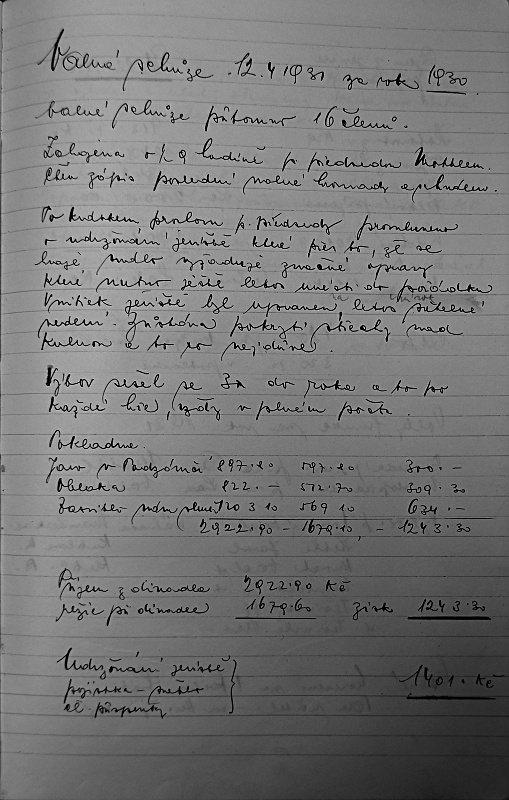 Valná schůze 12.4 1931 za rok 1930.
Valné schůze přítomno 16 členů.
Zahájena o ½ 9 hodině p. předsedou
Čten zápis poslední valné hromady a schválen.
Po krátkém proslovu p. předsedy promluveno
o udržování jeviště které přes to, že se
hraje málo vyžaduje značné opravy
které nutno ještě letos uvésti do pořádku
Vnitřek jeviště byl upraven, letos
vedení. Zůstává pokrytí střechy nad
a to co nejdříve.
Výbor sešel se 3x do roka a to po
každé hře, vždy v plném počtu.
Pokladna.
Jaro v Podzámčí 897.20 597.20 300.-
Oblaka 822.- 512.70 309.30
1203 10 569 10 634.-
2922.90 - 1679.10 - 1243.30
Příjem z divadla 2922.90 Kč
režie při divadle 1679.60 zisk 1243.30
Udržování jeviště
pojistka -
el. příspěvky
1401.- Kč